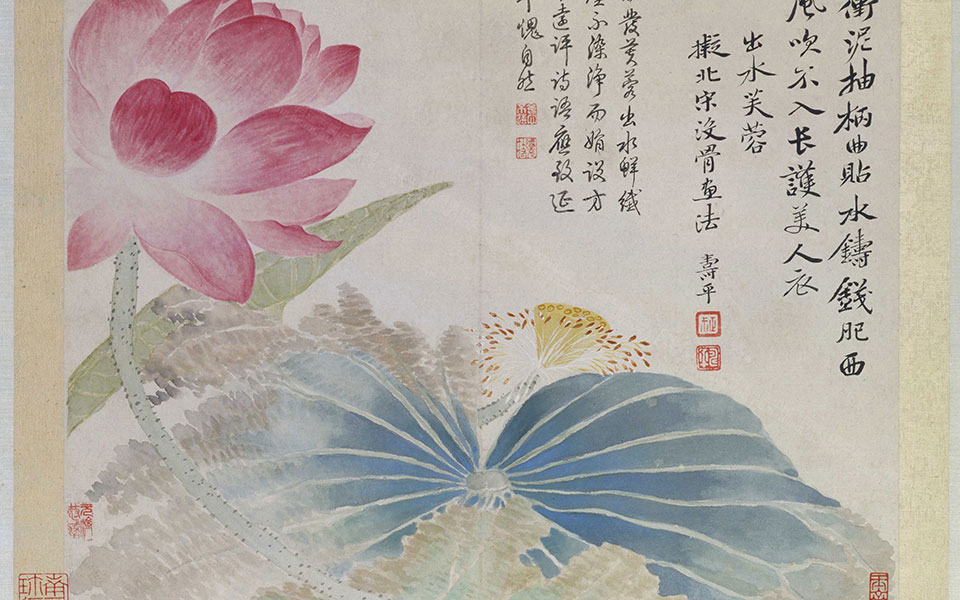 衝泥抽柄曲貼水鑄錢肥西
風吹不入長護美人衣
出水芙蓉
擬北宋沒骨畫法 壽平
發芙蓉出水鮮纖
不染淨而娟設方
遠評詩語應致延
愧自然